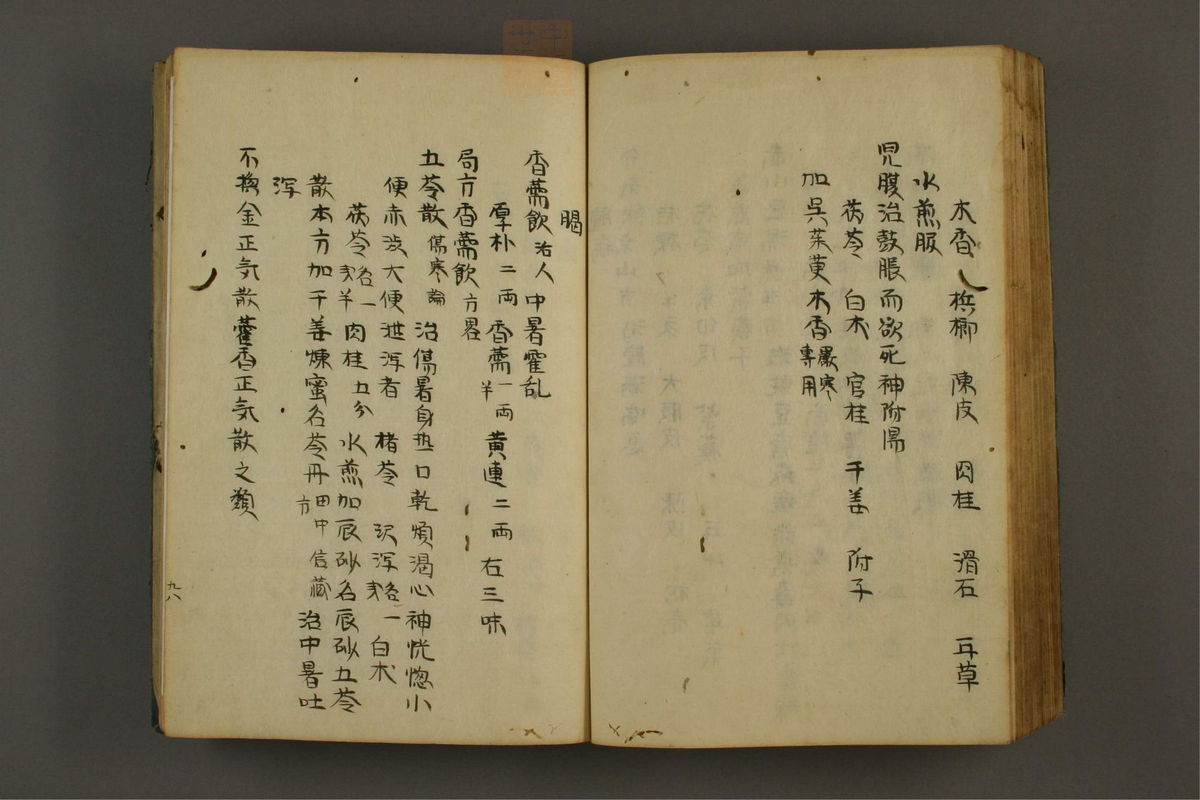 木香 梹榔 陳皮 肉桂 滑石 耳草
水煎服
児腹治鼓脹而欲死神附湯
茯苓 白朮 官桂 干姜 附子
加呉茱萸木香 厳寒専用
暍
香薷飲 治人 中暑霍乱
厚朴二両 香薷一両半 黄連二両 右三味
局方香薷飲 方畧
五苓散 傷寒論 治傷暑身热口乾煩渇心神恍惚小
便赤渋大便泄泻者 楮苓 沢泻各一戔 白朮
茯苓各一戔半 肉桂五分 水煎加辰砂名辰砂五苓
散本方加干姜煉蜜名苓丹 田中信蔵方 治中暑吐
泻
不換金正気散藿香正気散之類
九八